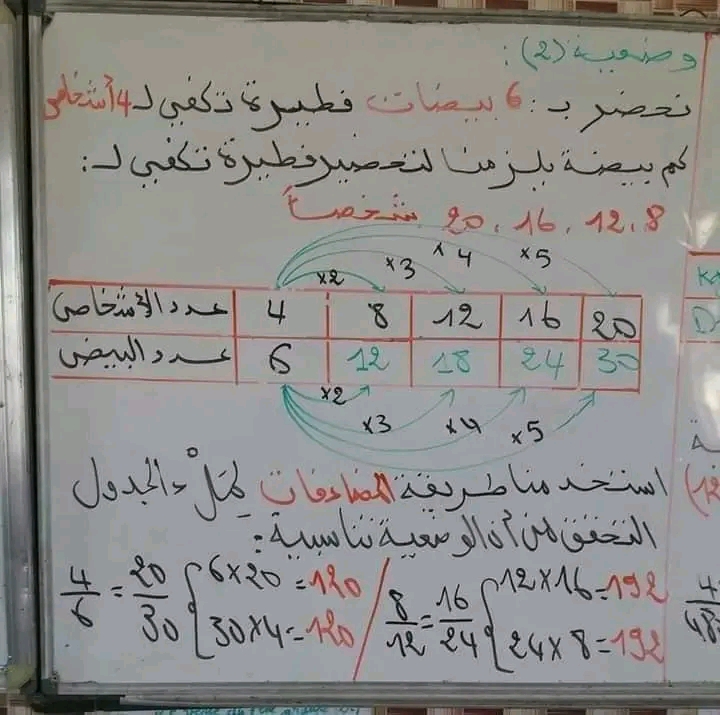 وضعية (2):
نحضر بـ: 6 بيضات فطيرة تكفي لـ 4 أشخاص
كم بيضة يلزمنا لتحضير فطيرة تكفي لـ:
8، 12، 16، 20 شخصاً
×2 ×3 ×4 ×5
عدد الأشخاص 4 8 12 16 20
عدد البيض 6 12 18 24 30
×2 ×3 ×4 ×5
استخدمنا طريقة المضاعفات لِمَلْءِ الجدول
التحقق من أن الوضعية تناسبية:
4/6 = 20/30 { 6×20=120 / 8/12 = 16/24 { 12×16=192
30×4=120 24×8=192